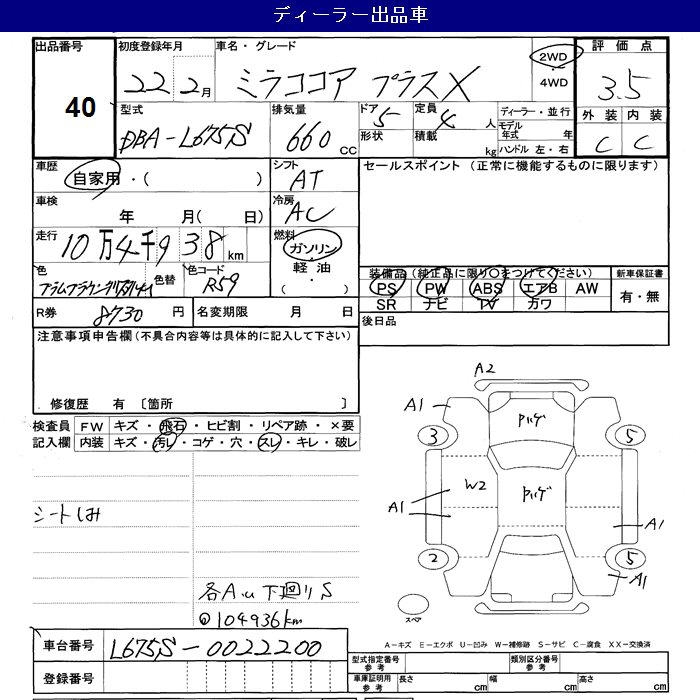 ディーラー出品車
出品番号 初度登録年月 車名・グレード 2WD ・ 4WD 評価点
40 22 2月 ミラココア プラスX 3.5
型式 排気量 ドア 定員 ディーラー・並行 外装 内装
DBA-L675S 660 CC 5 4 人 モデル年式 年 C C
形状 積載 kg ハンドル 左・右
車歴 シフト セールスポイント (正常に機能するものに限ります)
自家用・( ) AT
車検 冷房
年 月( 日) AC
走行 燃料
10万4千938km ガソリン・軽油・( )
色 色替 色コード R59
装備品 (純正品に限り○をつけてください) 新車保証書
PS PW ABS エアB AW 有・無
SR ナビ TV カワ
R券 8730円 名変期限 月 日 後日品
注意事項申告欄(不具合内容等は具体的に記入して下さい)
修復歴 有 〔箇所 〕
検査員 FW キズ・飛石・ヒビ割・リペア跡・×要
記入欄 内装 キズ・汚レ・コゲ・穴・スレ・キレ・破レ
A2
A1 Pハゲ
3 5
W2 Pハゲ
A1 A1
2 5
A1
スペア
シートしみ
各A.u 下廻りS
104936km
A-キズ E-エクボ U-凹み W-補修跡 S-サビ C-腐食 XX-交換済
車台番号 L675S-0022200
型式指定番号 参考 類別区分番号 参考
登録番号 車庫証明用 参考 長さ cm 幅 cm 高さ cm